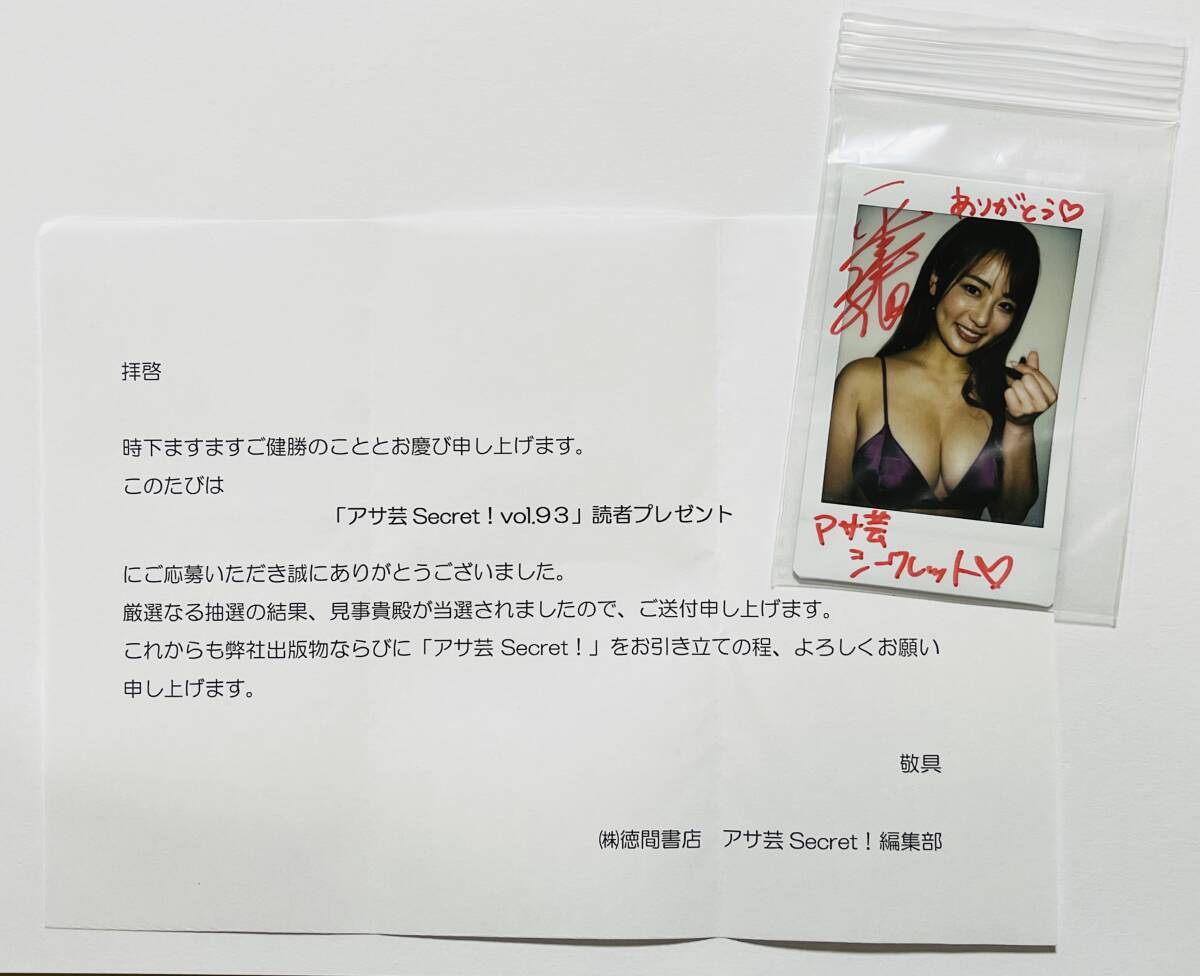 拝啓
時下ますますご健勝のこととお慶び申し上げます。
このたびは
「アサ芸 Secret！vol.93」読者プレゼント
にご応募いただき誠にありがとうございました。
厳選なる抽選の結果、見事貴殿が当選されましたので、ご送付申し上げます。
これからも弊社出版物ならびに「アサ芸 Secret！」をお引き立ての程、よろしくお願い
申し上げます。
敬具
㈱徳間書店　アサ芸 Secret！編集部
ありがとう♡
アサ芸
シークレット♡